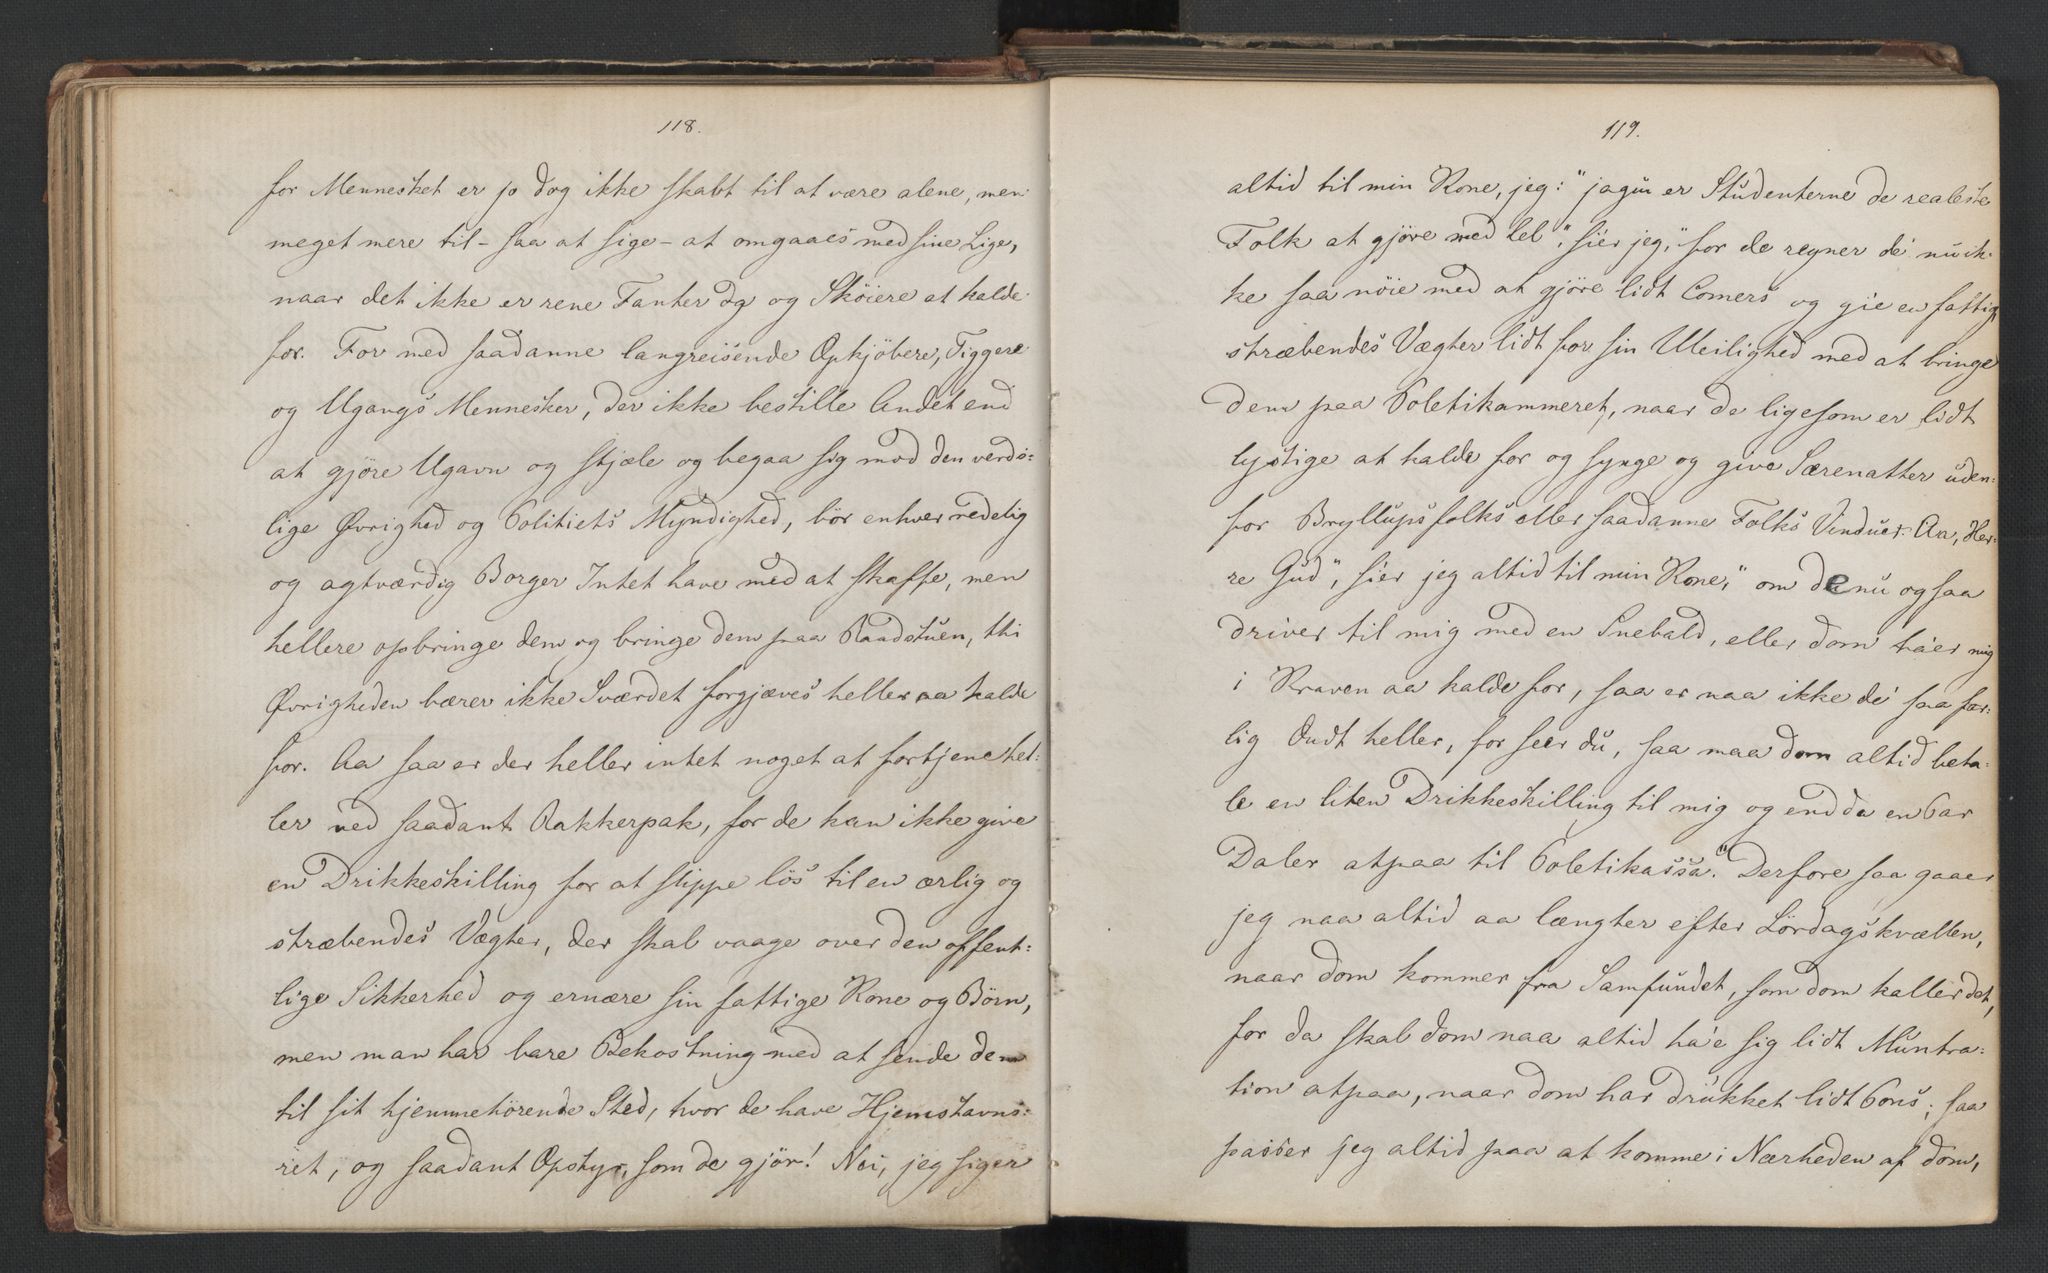 118.
for Mennesket er jo dog ikke skabt til at være alene, men
meget mere til - saa at sige - at omgaaes med sine Lige,
naar det ikke er rene Fanter og og Skøiere at kalde
for. For med saadanne langreisende Opkjöbere, Tiggere
og Ugangs Mennesker, der ikke bestille Andet end
at gjöre Ugavn og stjæle og begaa sig mod den verds-
lige Øvrighed og Politiets Myndighed, bör enhver redelig
og agtværdig Borger Intet have med at skaffe, men
hellere opbringe dem og bringe dem paa Raadstuen, thi
Øvrigheden bærer ikke Sværdet forgjæves heller aa kalde
for. Aa saa er der heller intet noget at fortjene hel-
ler ved saadant Rakkerpak, for de kan ikke give
en Drikkeskilling for at slippe lös til en ærlig og
stræbendes Vægter, der skal vaage over den offent-
lige Sikkerhed og ernære sin fattige Kone og Börn,
men man har bare Bekostning med at sende dem
til sit hjemmehörende Sted, hvor de have Hjemstavns-
ret, og saadant Opstyr, som de gjör! Nei, jeg siger
119.
altid til min Kone, jeg: "jagu er Studenterne de realeste
Folk at gjöre med lel", siér jeg, "for de regner dé nu ik-
ke saa nöie med at gjöre lidt Comers og gie en fattig
stræbendes Vægter lidt for sin Uleilighed med at bringe
dem paa Poletikammeret, naar de ligesom er lidt
lystige at kalde for og synge og give Særenatter uden-
for Bryllupsfolks eller saadanne Folks Vinduer. Aa, Her-
re Gud", siér jeg altid til min Kone, "om de nu og saa
driver til mig med en Snebald, eller dom táer mig
i Kraven aa kalde for, saa er naa ikke dé saa far-
lig Ondt heller, for seer du, saa maa dom altid beta-
le en liten Drikkeskilling til mig og endda en Par
Daler atpaa til Poletikassa." Derfore saa gaaer
jeg naa altid aa længter efter Lördagskvællen,
naar dom kommer fra Samfundet, som dom kaller det,
for da skal dom naa altid há'e sig lidt Muntra-
tion atpaa, naar dom har drukket lidt Pons; saa
passer jeg altid paa at komme i Nærheden af dom,